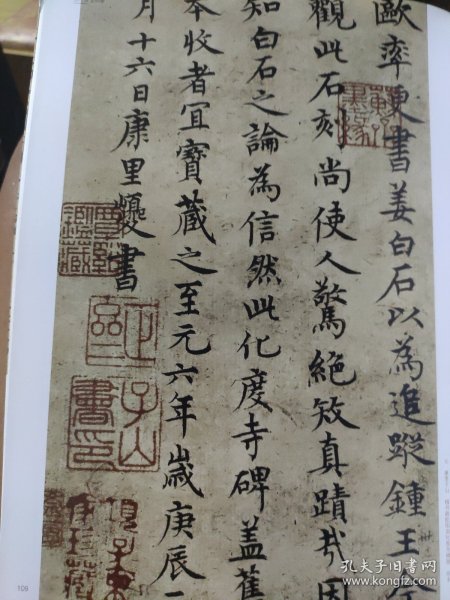 歐率更書姜白石以為追蹤鍾王
觀此石刻尚使人驚絕矧真蹟哉因
知白石之論為信然此化度寺碑蓋舊
本收者宜寶藏之至元六年歲庚辰
月十六日康里巙書
正齋
子山
109
孔夫子旧书网